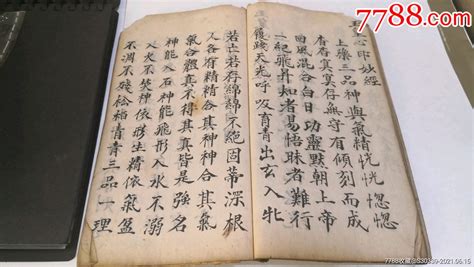 7788.com
心印妙經
上藥三品神與氣精恍恍惚惚
杳杳冥冥存無守有傾刻而成
回風混合白日功靈默朝上帝
一紀飛昇知者易悟昧者難行
履踐天光呼吸育青出玄入牝
若亡若存綿綿不絕固蒂深根
人各有精精合其神神合其氣
氣合其真不得其真皆是強名
神能入石神能飛形入水不溺
入火不焚神依形生精依氣盈
不凋不殘松柏青青三品一理